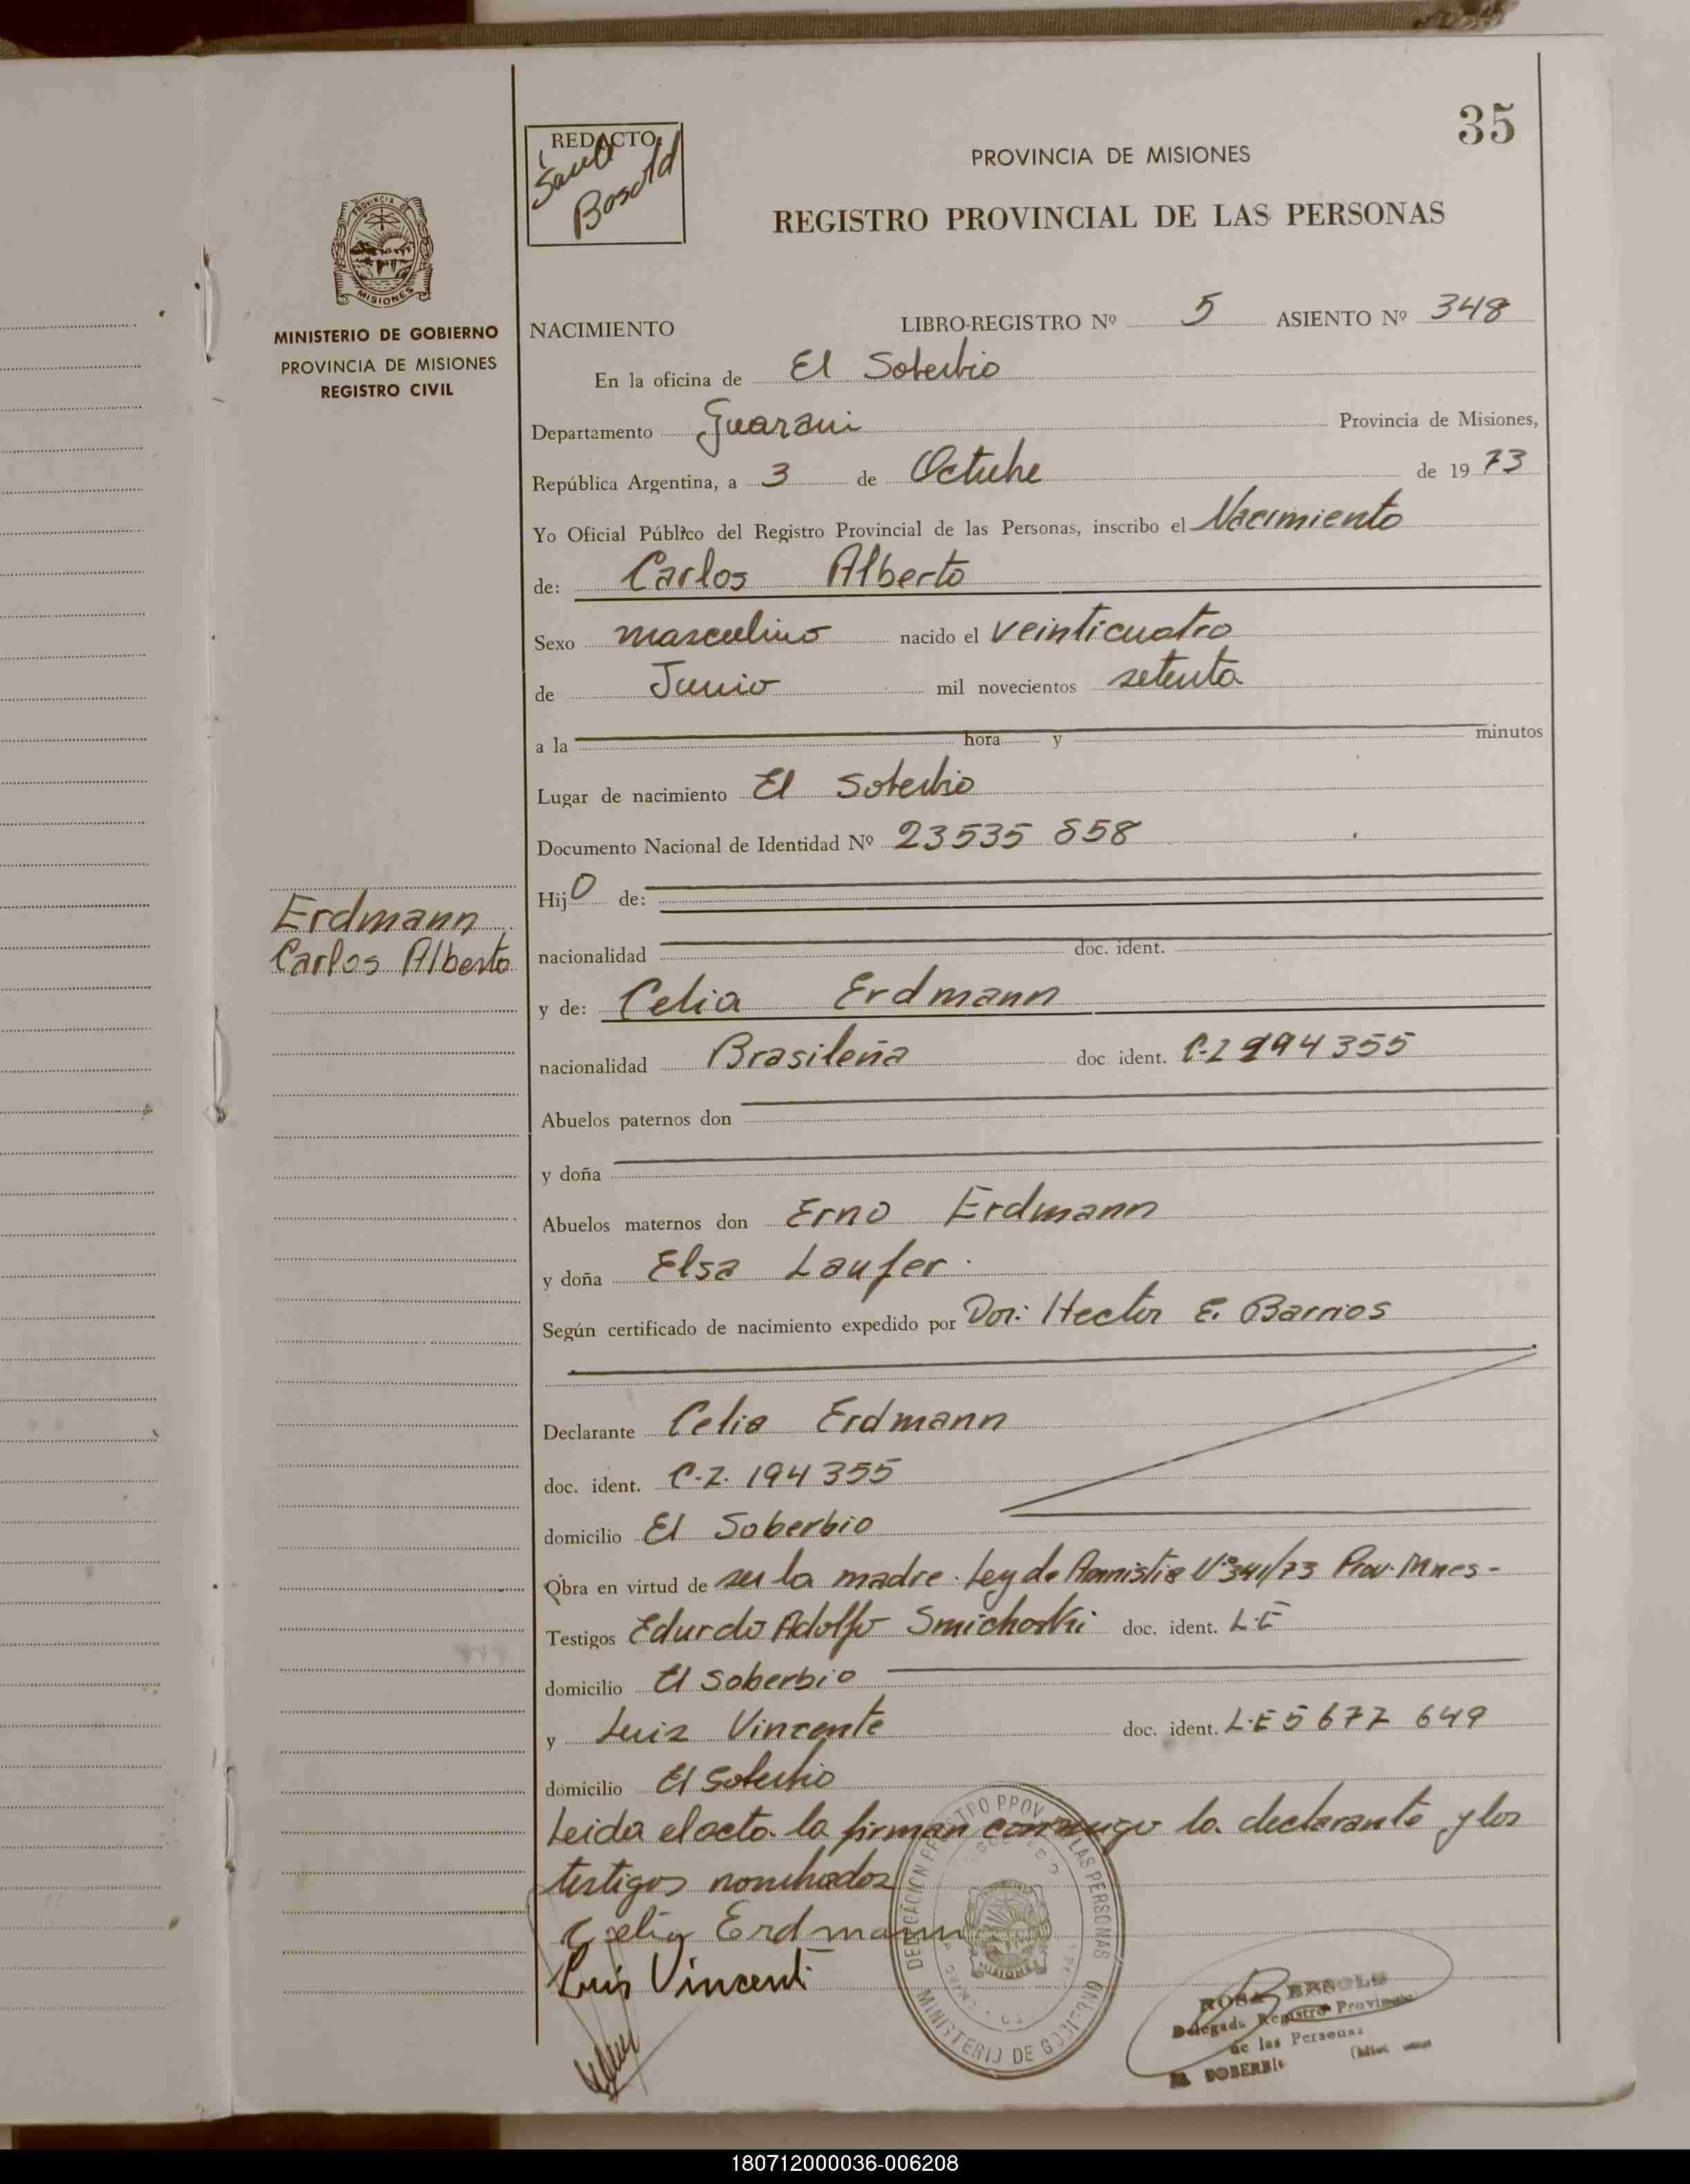 35
REDACTO
Bosold
PROVINCIA DE MISIONES
REGISTRO PROVINCIAL DE LAS PERSONAS
PROVINCIA DE
MISIONES
MINISTERIO DE GOBIERNO
PROVINCIA DE MISIONES
REGISTRO CIVIL
NACIMIENTO LIBRO-REGISTRO Nº 5 ASIENTO Nº 348
En la oficina de El Soberbio
Departamento Guarani Provincia de Misiones,
República Argentina, a 3 de Octubre de 1973
Yo Oficial Público del Registro Provincial de las Personas, inscribo el Nacimiento
de: Carlos Alberto
Sexo masculino nacido el veinticuatro
de Junio mil novecientos setenta
a la hora y minutos
Lugar de nacimiento El Soberbio
Documento Nacional de Identidad Nº 23535 858
Hijo de:
Erdmann
Carlos Alberto
nacionalidad doc. ident.
y de: Celia Erdmann
nacionalidad Brasileña doc. ident. C-Z 194355
Abuelos paternos don
y doña
Abuelos maternos don Erno Erdmann
y doña Elsa Laufer.
Según certificado de nacimiento expedido por Dor: Hector E. Barrios
Declarante Celia Erdmann
doc. ident. C-Z. 194355
domicilio El Soberbio
Obra en virtud de ser la madre. Ley de Amnistia Nº341/73 Prov. Mnes-
Testigos Edurdo Adolfo Smichoski doc. ident. L.E
domicilio El Soberbio
y Luiz Vincente doc. ident. L.E 5 677 649
domicilio El Soberbio
Leida el acta la firman conmigo la declarante y los
testigos nombrados
Celia Erdmann
Luis Vincenti
DELEGACION REGISTRO PROV. DE LAS PERSONAS
MINISTERIO DE GOBIERNO
MISIONES
ROSA BESOLD
Delegada Registro Provincial
de las Personas
EL SOBERBIO
180712000036-006208